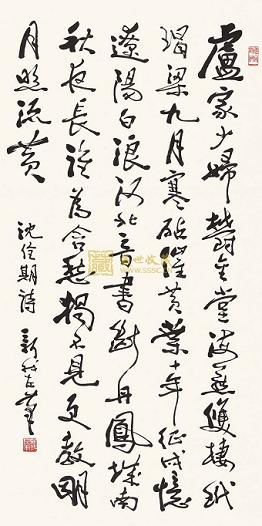 盧家少婦鬱金堂海燕雙棲玳
瑁梁九月寒砧催黃葉十年征戍憶
遼陽白浪河北音書斷丹鳳城南
秋夜長誰為含愁獨不見更教明
月照流黃
沈佺期詩 新我左筆